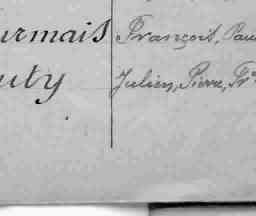 urmais François, Pau
uty Julien, Pierre, Fr